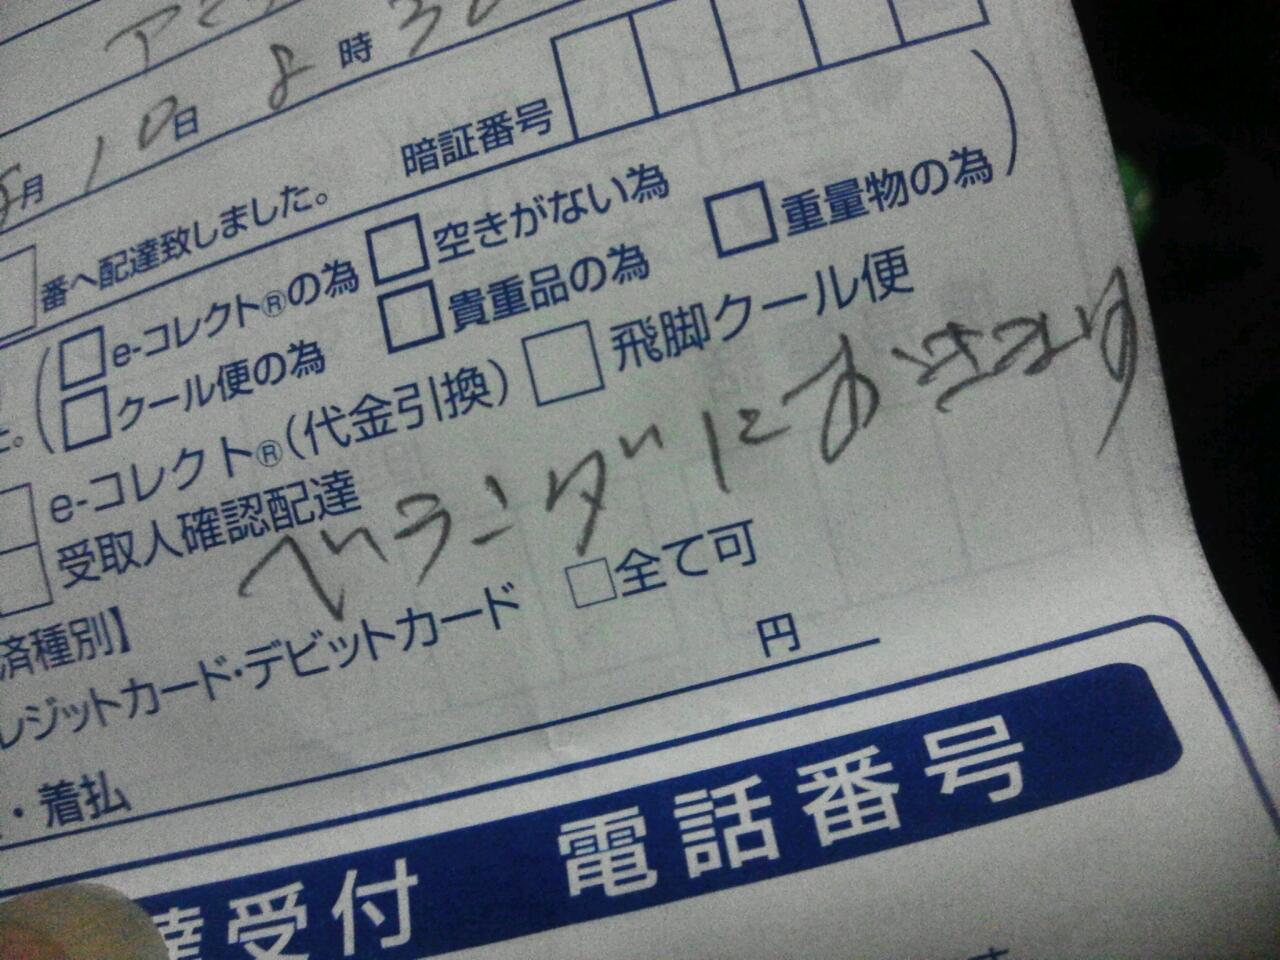 月10日8時30
暗証番号
番へ配達致しました。
(□e-コレクト®の為 □空きがない為
□クール便の為 □貴重品の為 □重量物の為)
e-コレクト®(代金引換) □飛脚クール便
受取人確認配達
ベランダにおきます
済種別】
レジットカード・デビットカード □全て可
円
・着払
達受付 電話番号